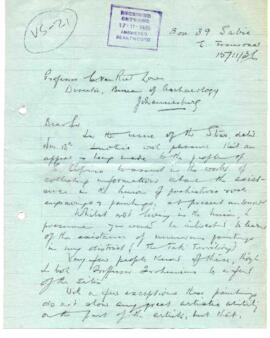 VS-021
RECEIVED
ONTVANG
17-11-1936
ANSWERED
BEANTWOORD
Box 39 Sabie
E. Transvaal
15/11/36
Professor C. Van Riet Lowe
Director, Bureau of Archaeology
Johannesburg
Dear Sir
In the issue of the Star dated
Nov. I notice with pleasure that an
appeal is being made to the people of
to assist in the work of
collecting information about the exist-
ence in the Union of prehistoric rock
engravings & paintings, at present unknown
Whilst not living in the Union, I
presume you would be interested to learn
of the existence of numerous paintings
in my district (
Very few people know of these, though
I took Professor to a few
of the sites
With a few exceptions these paintings
do not show any great artistic ability
on the part of the artists, but that